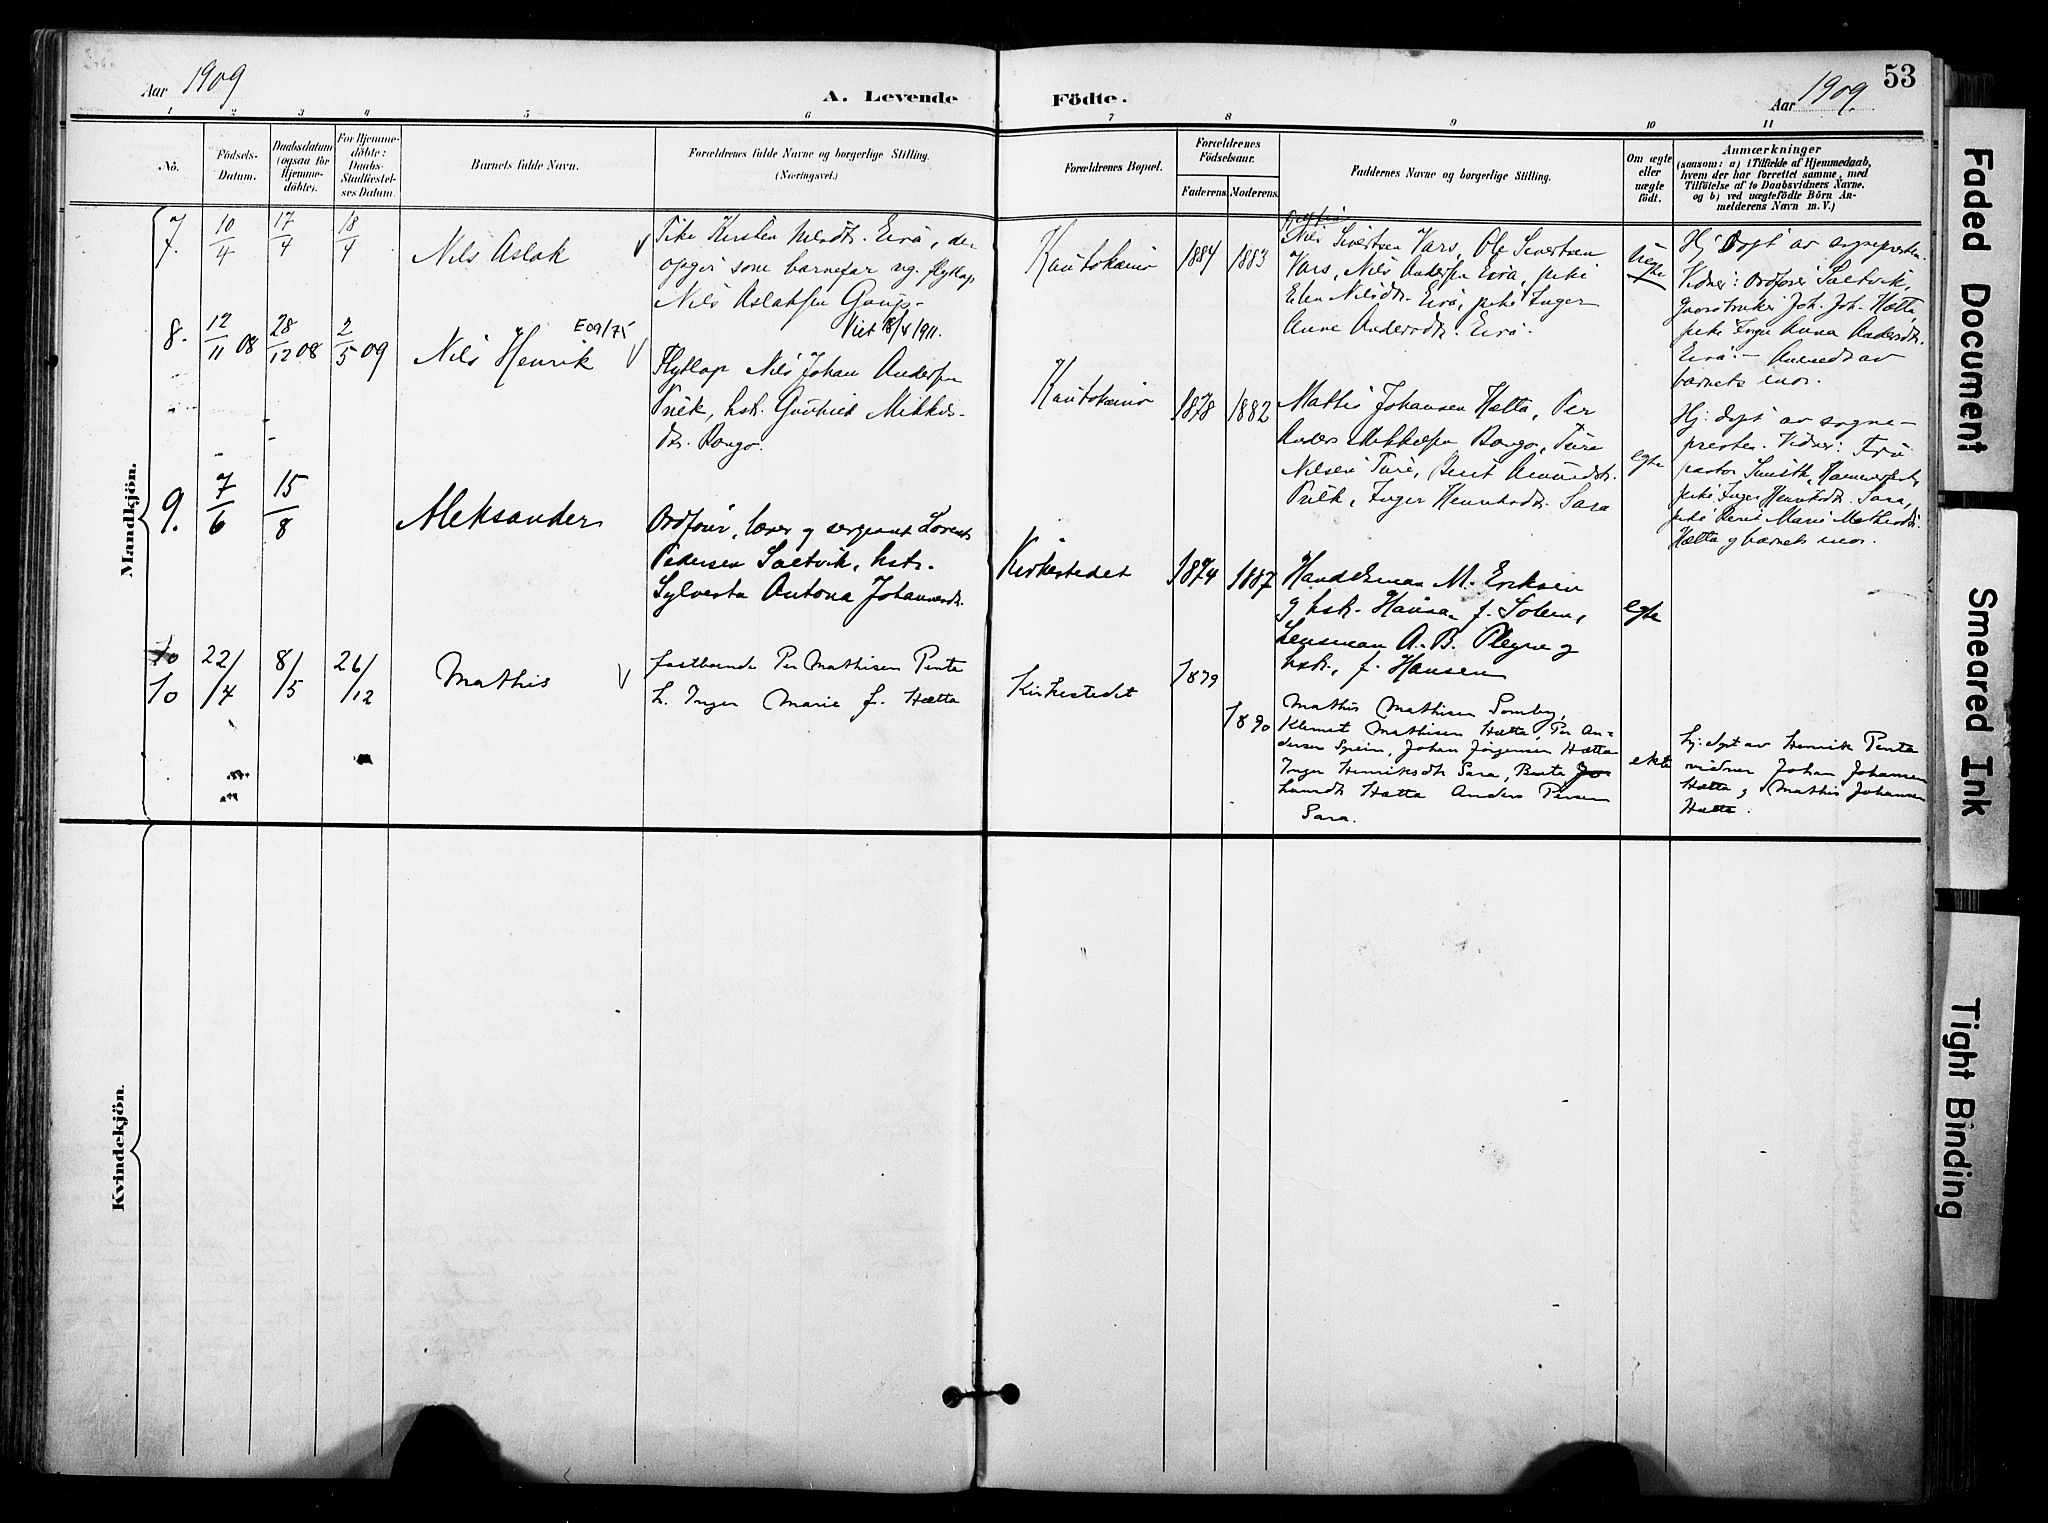 Aar 1909
A. Levende
Födte.
Aar 1909.
53
1 2 3 4 5 6 7 8 9 10 11
Nò.
Födsels-
Datum.
Daabsdatum
(ogsaa for
Hjemme-
döbte).
For Hjemme-
döbte:
Daabs-
Stadfæstel-
ses Datum.
Barnets fulde Navn.
Forældrenes fulde Navne og borgerlige Stilling.
(Næringsvei.)
Forældrenes Bopæl.
Forældrenes
Födselsaar.
Faderens.
Moderens.
Faddernes Navne og borgerlige Stilling.
Om ægte
eller
uægte
född.
Anmærkninger
(saasom: a) i Tilfælde af Hjemmedaab,
hvem der har forrettet samme, med
Tilföielse af to Daabsvidners Navne,
og b) ved uægtefödte Börn An-
melderens Navn m. V.)
Mandkjön.
7.
10/4
17/4
18/4
Nils Aslak
Pike Kirsten Nilsdtr. Eira, der
opgir som barnefar ug. flytlap
Nils Aslaksen Gaup.
Kautokeino
1884
1883
Nils Sivertsen Vars, Ole Sivertsen
Vars, Nils Andersen Eira, pike
Elen Nilsdtr. Eira, pike Inger
Anne Andersdtr. Eira.
uegte
Hj. døpt av sognepresten.
Vidner: Ordfører Saltvik,
Joh. Joh. Hætta,
pike Inger Anna Andersdtr.
Eira. – Anmeldt av
barnets mor.
8.
12/11 08
28/12 08
2/5 09
Nils Henrik
E 09/75
Viet 18/4 1911.
Flytlap Nils Johan Andersen
Triik, hstr. Mikkels-
dtr. Bongo.
Kautokeino
1878
1882
Mattis Johansen Hætta, Per
Anders Mikkelsen Bongo, Ture
Nilsen Turi, Berit Amundsdtr.
Triik, Inger Henriksdtr. Sara
egte
Hj. døpt av sogne-
presten. Vidner: Fru
pastor Smith, Hammerfest,
pike Inger Henriksdtr. Sara,
pike Berit Marie Mathisdtr.
Hætta og barnets mor.
9.
7/6
15/8
Aleksander
Ordfører, lærer og sergeant Lorents
Pedersen Saltvik, hstr.
Sylvesta Antona Johannesdtr.
Kirkestedet
1874
1887
Handelsman M. Eriksen
g hstr. Hansa f. Solem,
Lensman A. B. Plesner og
hstr. f. Hansen
egte
10
10
22/4
8/5
26/12
Mathis
fastboende Per Mathisen Penta
h. Inger Marie f. Hætta
Kirkestedet
1879
1890
Mathis Mathisen Somby,
Klemet Mathisen Hætta, Per An-
dersen Spein, Johan Jørgensen Hætta
Inger Henriksdtr Sara, Berte
Hætta Anders Persen
Sara.
ekte
hj. døpt av Henrik Penta
vidner Johan Johansen
Hætta og Mathis Johansen
Hætta.
Kvindekjön.
Faded Document
Smeared Ink
Tight Binding